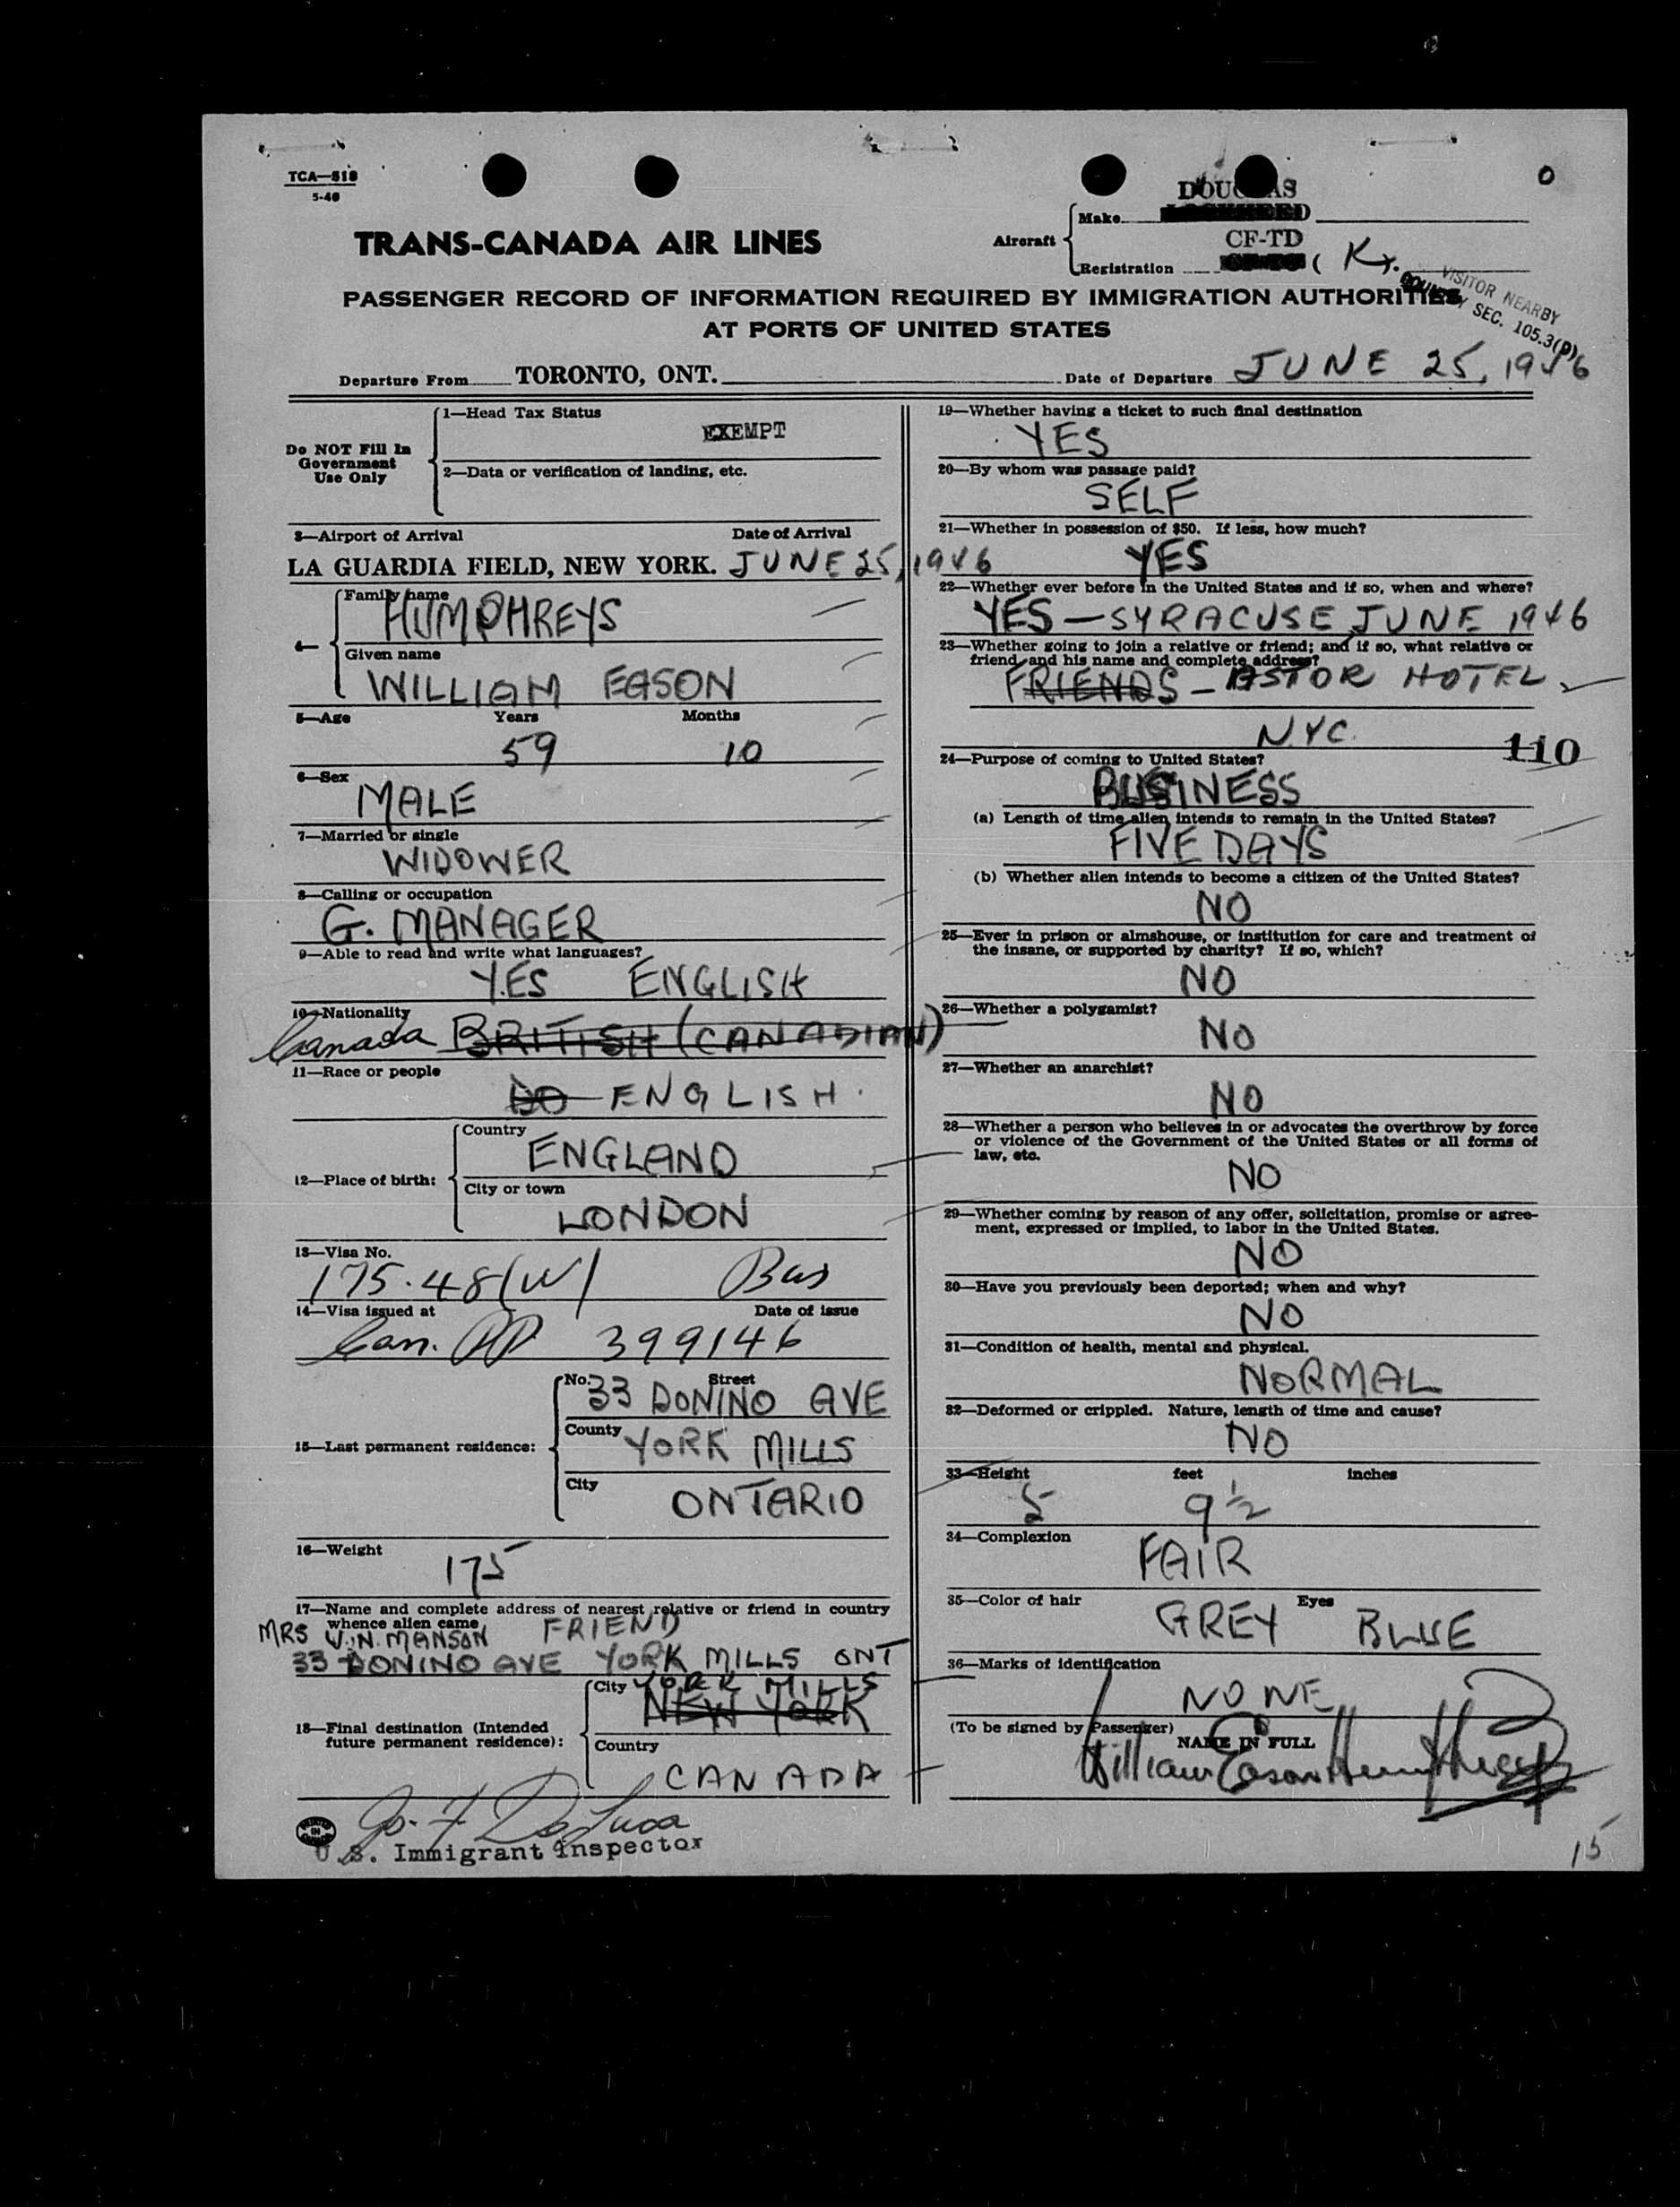 TCA—518
5-46
DOUGLAS
Make
LOCKHEED
Aircraft
CF-TD
Registration ( K ).
TRANS-CANADA AIR LINES
VISITOR NEARBY
COUNTRY SEC. 105.3(P)
PASSENGER RECORD OF INFORMATION REQUIRED BY IMMIGRATION AUTHORITIES
AT PORTS OF UNITED STATES
Departure From TORONTO, ONT. Date of Departure JUNE 25, 1946
Do NOT Fill In
Government
Use Only
1—Head Tax Status
EXEMPT
2—Data or verification of landing, etc.
3—Airport of Arrival Date of Arrival
LA GUARDIA FIELD, NEW YORK. JUNE 25, 1946
4—
Family name
HUMPHREYS
Given name
WILLIAM EASON
5—Age Years Months
59 10
6—Sex
MALE
7—Married or single
WIDOWER
8—Calling or occupation
G. MANAGER
9—Able to read and write what languages?
YES ENGLISH
10—Nationality
Canada BRITISH (CANADIAN)
11—Race or people
DO ENGLISH.
12—Place of birth:
Country
ENGLAND
City or town
LONDON
13—Visa No.
175.48(W) Bus
14—Visa issued at Date of issue
Can. PP 399146
15—Last permanent residence:
No. Street
33 DONINO AVE
County
YORK MILLS
City
ONTARIO
16—Weight
175
17—Name and complete address of nearest relative or friend in country
whence alien came
MRS W.N. MANSON FRIEND
33 DONINO AVE YORK MILLS ONT
18—Final destination (Intended
future permanent residence):
City YORK MILLS
NEW YORK
Country
CANADA
U.S. Immigrant Inspector
19—Whether having a ticket to such final destination
YES
20—By whom was passage paid?
SELF
21—Whether in possession of $50. If less, how much?
YES
22—Whether ever before in the United States and if so, when and where?
YES — SYRACUSE, JUNE 1946
23—Whether going to join a relative or friend; and if so, what relative or
friend, and his name and complete address?
FRIENDS — ASTOR HOTEL
N.Y.C.
110
24—Purpose of coming to United States?
BUSINESS
(a) Length of time alien intends to remain in the United States?
FIVE DAYS
(b) Whether alien intends to become a citizen of the United States?
NO
25—Ever in prison or almshouse, or institution for care and treatment of
the insane, or supported by charity? If so, which?
NO
26—Whether a polygamist?
NO
27—Whether an anarchist?
NO
28—Whether a person who believes in or advocates the overthrow by force
or violence of the Government of the United States or all forms of
law, etc.
NO
29—Whether coming by reason of any offer, solicitation, promise or agree-
ment, expressed or implied, to labor in the United States.
NO
30—Have you previously been deported; when and why?
NO
31—Condition of health, mental and physical.
NORMAL
32—Deformed or crippled. Nature, length of time and cause?
NO
33—Height feet inches
5 9½
34—Complexion
FAIR
35—Color of hair Eyes
GREY BLUE
36—Marks of identification
NONE
(To be signed by Passenger) NAME IN FULL
William Eason Humphreys
15